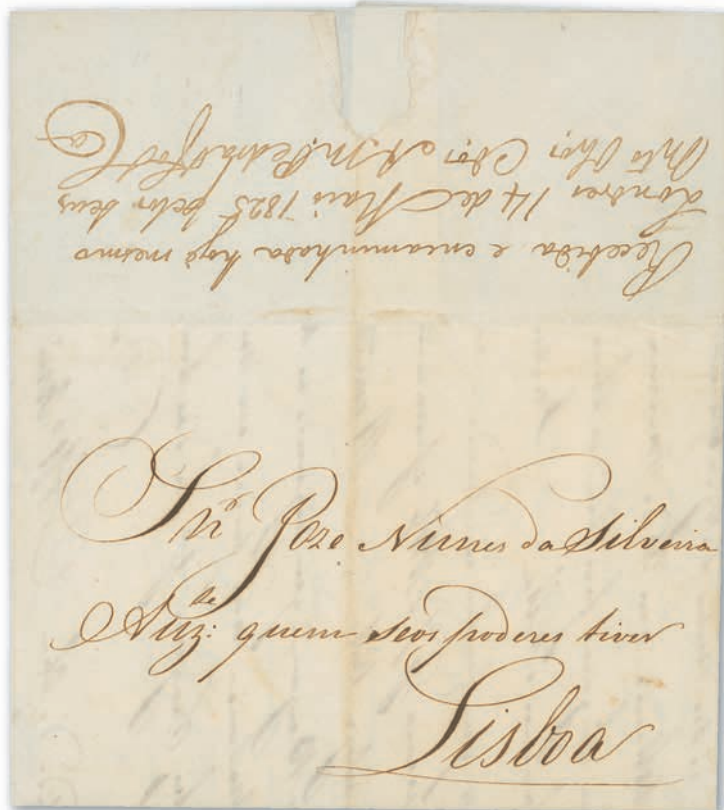 Recebida e encaminhada hoje mesmo
Londres 14 de Maio 1825 pelos seus
Mto Obos Cdos A. M. Pedra &
Co
Snr Joze Nunes da Silveira
Auz: de quem seos poderes tiver
Lisboa